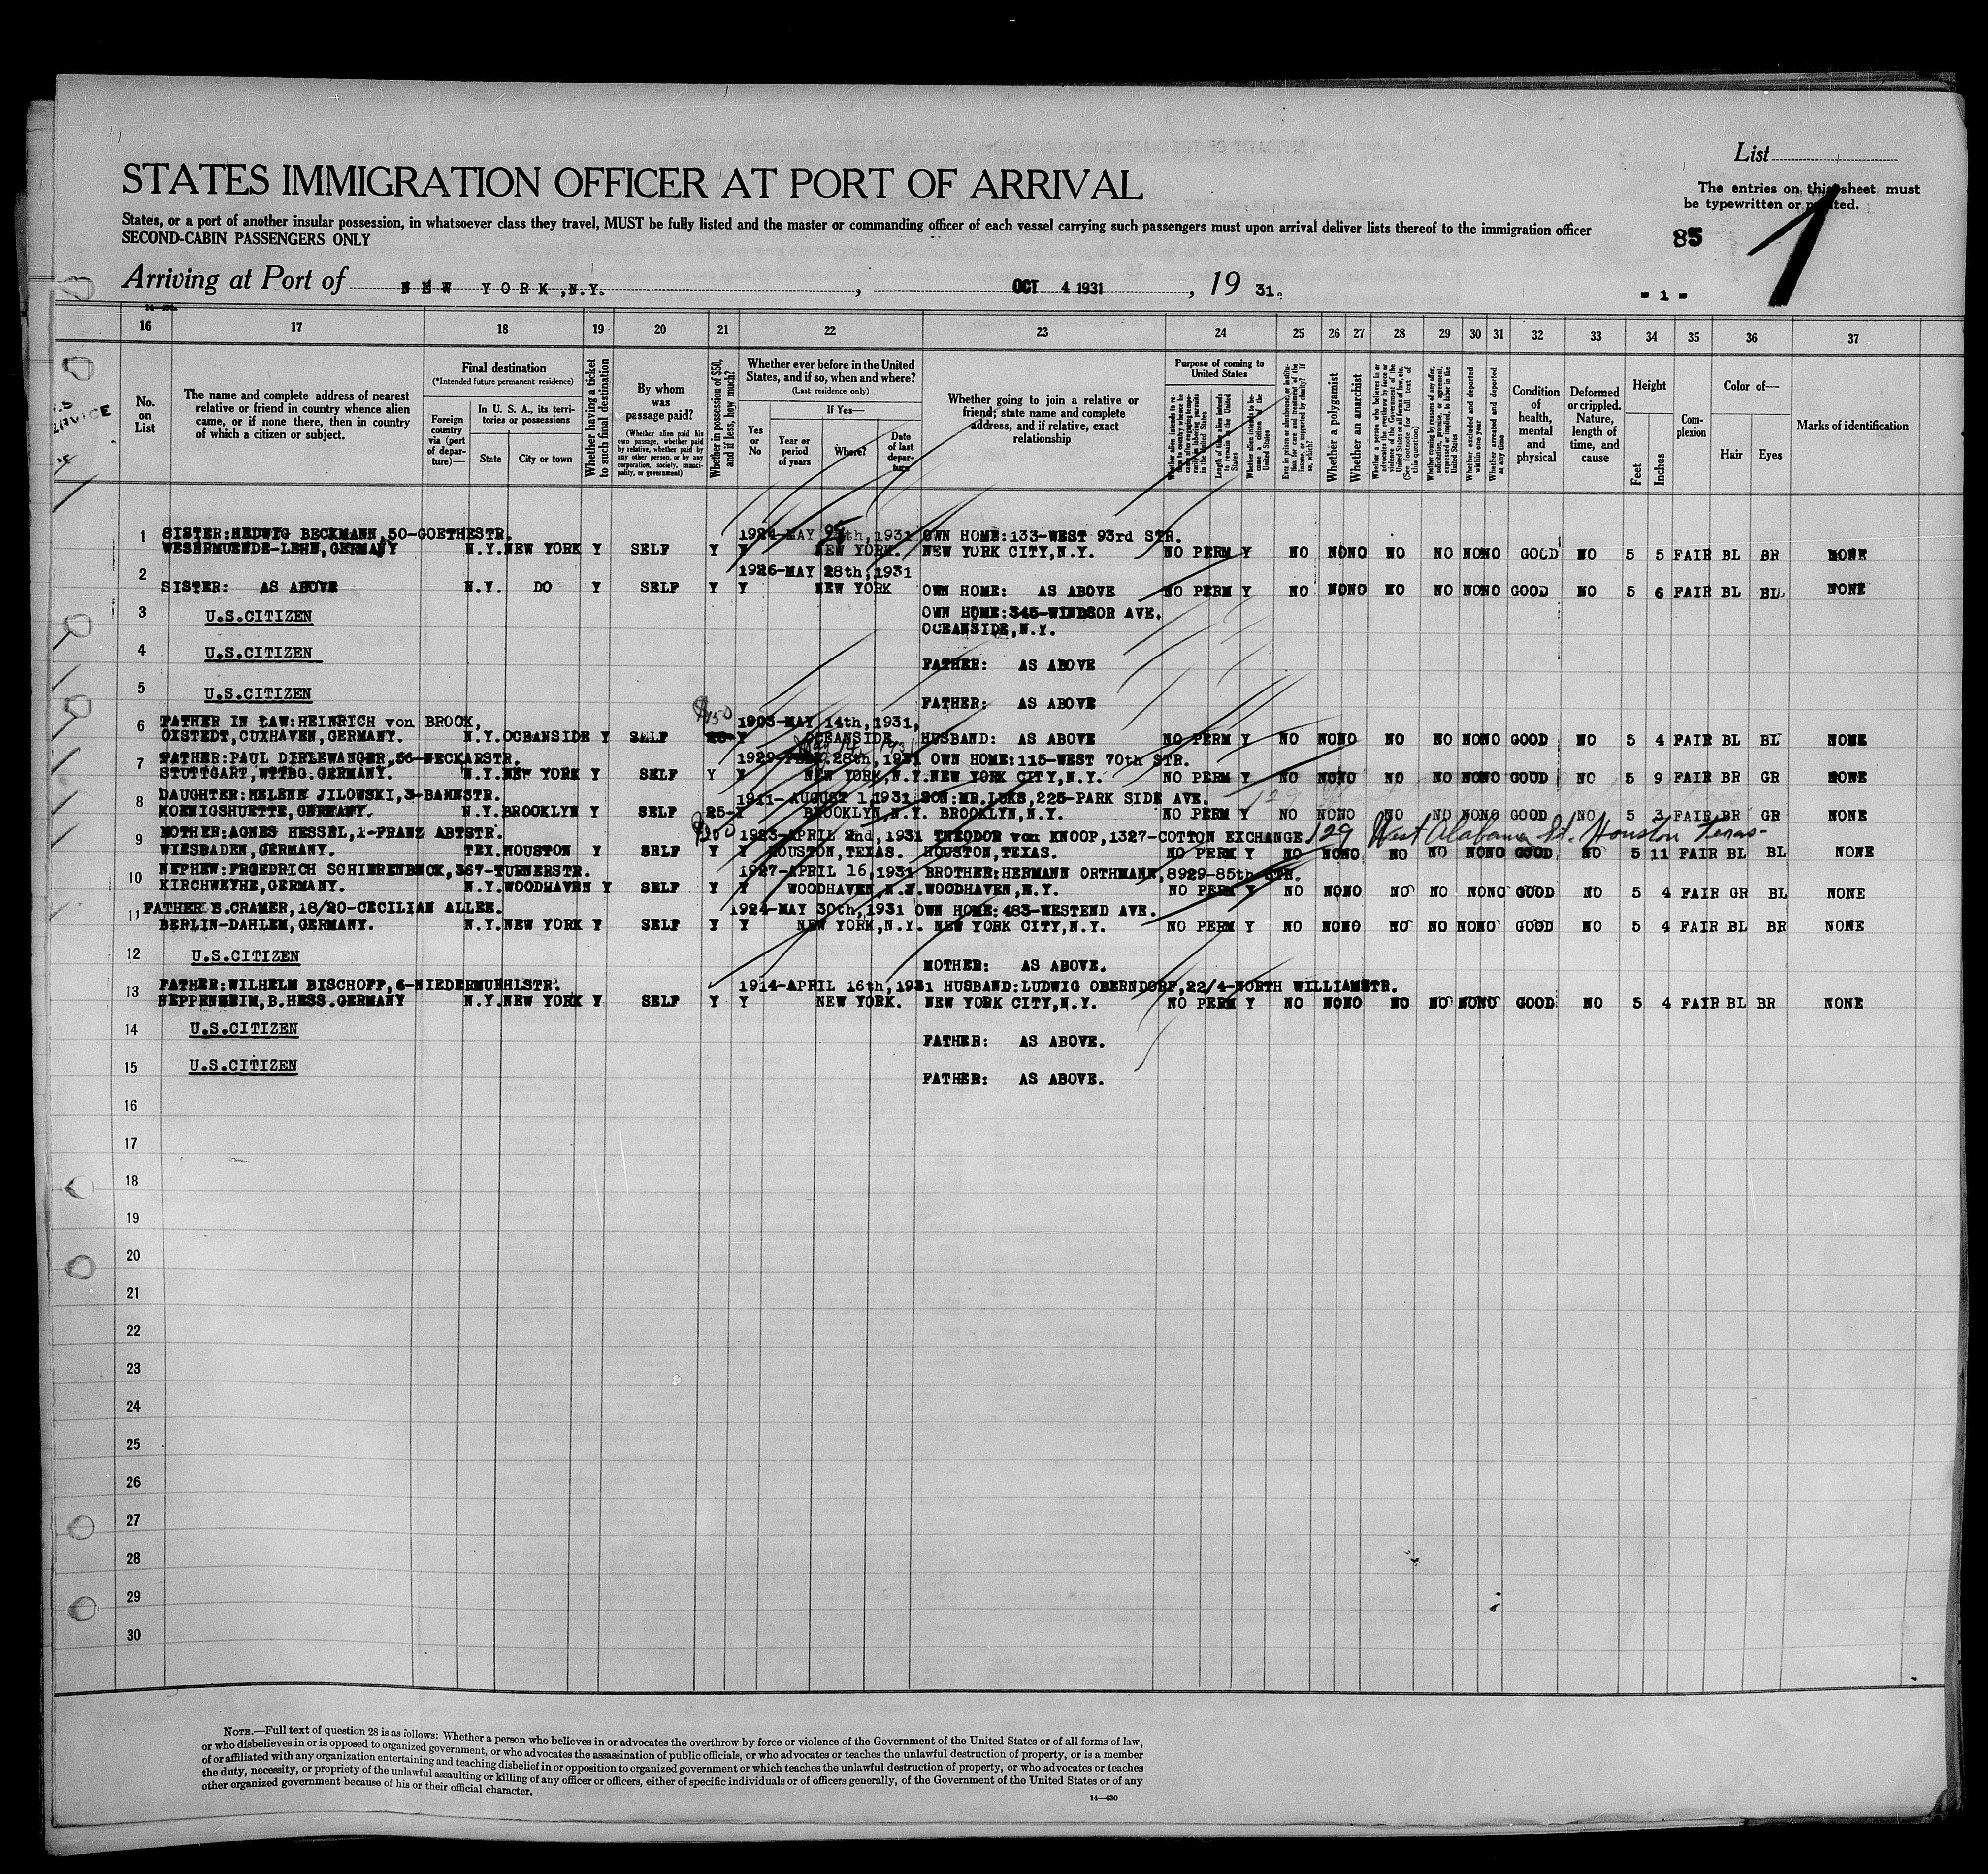 List
STATES IMMIGRATION OFFICER AT PORT OF ARRIVAL
The entries on this sheet must
be typewritten or printed.
States, or a port of another insular possession, in whatsoever class they travel, MUST be fully listed and the master or commanding officer of each vessel carrying such passengers must upon arrival deliver lists thereof to the immigration officer
SECOND-CABIN PASSENGERS ONLY
85
1
Arriving at Port of NEW YORK, N.Y. , OCT 4 1931 , 19 31.
- 1 -
16 17 18 19 20 21 22 23 24 25 26 27 28 29 30 31 32 33 34 35 36 37
No. on List
The name and complete address of nearest relative or friend in country whence alien came, or if none there, then in country of which a citizen or subject.
Final destination
(*Intended future permanent residence)
Foreign country via (port of departure)—
In U. S. A., its territories or possessions
State
City or town
Whether having a ticket to such final destination
By whom was passage paid?
(Whether alien paid his own passage, whether paid by relative, whether paid by any other person, or by any corporation, society, municipality, or government)
Whether in possession of $50, and if less, how much?
Whether ever before in the United States, and if so, when and where?
(Last residence only)
Yes or No
If Yes—
Year or period of years
Where?
Date of last departure
Whether going to join a relative or friend; state name and complete address, and if relative, exact relationship
Purpose of coming to United States
Length of time alien intends to remain in the United States
Whether alien intends to become a citizen of the United States
Whether a polygamist
Whether an anarchist
(See footnote for full text of this question)
Whether excluded and deported within one year
Whether arrested and deported at any time
Condition of health, mental and physical
Deformed or crippled. Nature, length of time, and cause
Height
Feet
Inches
Complexion
Color of—
Hair
Eyes
Marks of identification
1 SISTER:HEDWIG BECKMANN,50-GOETHESTR. 1924-MAY 1931 OWN HOME:133-WEST 93rd STR.
WESERMUENDE-LEHE,GERMANY N.Y. NEW YORK Y SELF Y Y NEW YORK. NEW YORK CITY,N.Y. NO PERM Y NO NO NO NO NO NO NO GOOD NO 5 5 FAIR BL BR NONE
2 1926-MAY 28th,1931
SISTER: AS ABOVE N.Y. DO Y SELF Y Y NEW YORK OWN HOME: AS ABOVE NO PERM Y NO NO NO NO NO NO NO GOOD NO 5 6 FAIR BL BL NONE
3 U.S.CITIZEN OWN HOME:345-WINDSOR AVE.
OCEANSIDE,N.Y.
4 U.S.CITIZEN FATHER: AS ABOVE
5 U.S.CITIZEN FATHER: AS ABOVE
$150
6 FATHER IN LAW:HEINRICH von BROOK, 1903-MAY 14th,1931,
OXSTEDT,CUXHAVEN,GERMANY. N.Y. OCEANSIDE Y SELF 25- Y OCEANSIDE HUSBAND: AS ABOVE NO PERM Y NO NO NO NO NO NO NO GOOD NO 5 4 FAIR BL BL NONE
May 14 1931
7 FATHER:PAUL DIRLEWANGER,56-NECKARSTR. 1929-FEB.28th,1931 OWN HOME:115-WEST 70th STR.
STUTTGART,WTTBG.GERMANY. N.Y. NEW YORK Y SELF Y Y NEW YORK,N.Y. NEW YORK CITY,N.Y. NO PERM Y NO NO NO NO NO NO NO GOOD NO 5 9 FAIR BR GR NONE
8 DAUGHTER:HELENE JILOWSKI,3-BAHNSTR. 1911-AUGUST 1,1931 SON:MR.LUKS,225-PARK SIDE AVE.
KOENIGSHUETTE,GERMANY. N.Y. BROOKLYN Y SELF 25- Y BROOKLYN,N.Y. BROOKLYN,N.Y. NO PERM Y NO NO NO NO NO NO NO GOOD NO 5 3 FAIR BR GR NONE
9 MOTHER:AGNES HESSEL,1-FRANZ ABTSTR. 1923-APRIL 2nd,1931 THEODOR von KNOOP,1327-COTTON EXCHANGE. 129 West Alabama St. Houston Texas-
WIESBADEN,GERMANY. TEX. HOUSTON Y SELF Y Y HOUSTON,TEXAS. HOUSTON,TEXAS. NO PERM Y NO NO NO NO NO NO NO GOOD NO 5 11 FAIR BL BL NONE
10 NEPHEW:FRIEDRICH SCHIERENBECK,367-TURNERSTR. 1927-APRIL 16,1931 BROTHER:HERMANN ORTHMANN,8929-85th STR.
KIRCHWEYHE,GERMANY. N.Y. WOODHAVEN Y SELF Y Y WOODHAVEN,N.Y. WOODHAVEN,N.Y. NO PERM Y NO NO NO NO NO NO NO GOOD NO 5 4 FAIR GR BL NONE
11 FATHER S.CRAMER,18/20-CECILIAN ALLEE. 1924-MAY 30th,1931 OWN HOME:483-WESTEND AVE.
BERLIN-DAHLEM,GERMANY. N.Y. NEW YORK Y SELF Y Y NEW YORK,N.Y. NEW YORK CITY,N.Y. NO PERM Y NO NO NO NO NO NO NO GOOD NO 5 4 FAIR BL BR NONE
12 U.S.CITIZEN MOTHER: AS ABOVE.
13 FATHER:WILHELM BISCHOFF,6-NIEDERMUEHLSTR. 1914-APRIL 16th,1931 HUSBAND:LUDWIG OBERNDORF,22/4-NORTH WILLIAMSTR.
HEPPENHEIM,B.HESS.GERMANY N.Y. NEW YORK Y SELF Y Y NEW YORK. NEW YORK CITY,N.Y. NO PERM Y NO NO NO NO NO NO NO GOOD NO 5 4 FAIR BL BR NONE
14 U.S.CITIZEN FATHER: AS ABOVE.
15 U.S.CITIZEN FATHER: AS ABOVE.
16
17
18
19
20
21
22
23
24
25
26
27
28
29
30
NOTE.—Full text of question 28 is as follows: Whether a person who believes in or advocates the overthrow by force or violence of the Government of the United States or of all forms of law,
or who disbelieves in or is opposed to organized government, or who advocates the assassination of public officials, or who advocates or teaches the unlawful destruction of property, or is a member
of or affiliated with any organization entertaining and teaching disbelief in or opposition to organized government or which teaches the unlawful destruction of property, or who advocates or teaches
the duty, necessity, or propriety of the unlawful assaulting or killing of any officer or officers, either of specific individuals or of officers generally, of the Government of the United States or of any
other organized government because of his or their official character.
14—430